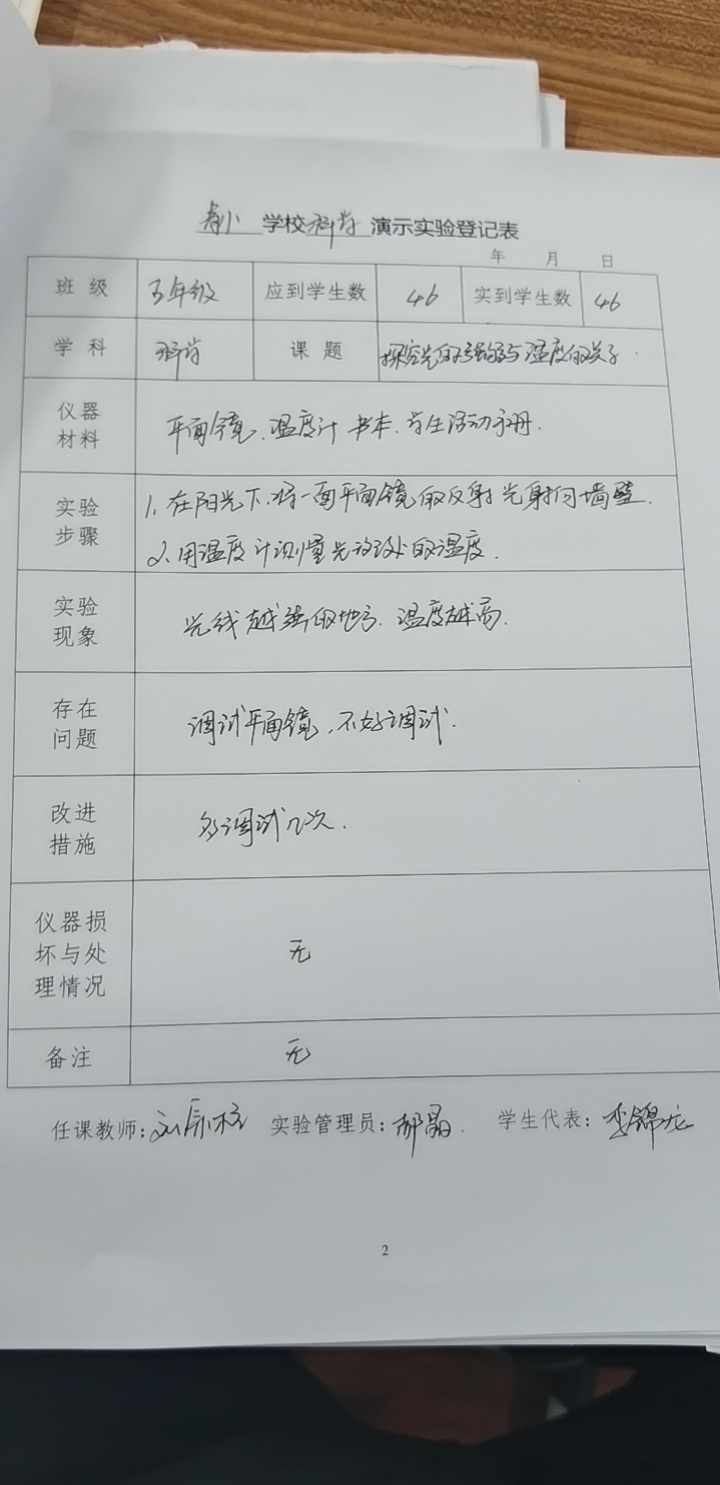 学校科学演示实验登记表
年 月 日
班级 五年级 应到学生数 46 实到学生数 46
学科 科学 课题 探究光的强弱与温度的关系
仪器材料 平面镜、温度计 书本、学生活动手册.
实验步骤 1、在阳光下,将一面平面镜的反射光射向墙壁.
2、用温度计测量光的该处的温度.
实验现象 光线越强的地方、温度越高.
存在问题 调试平面镜,不好调试.
改进措施 多调试几次.
仪器损坏与处理情况 无
备注 无
任课教师: 实验管理员:郝晶. 学生代表:李锦龙
2